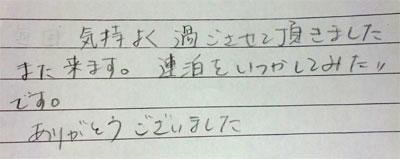 気持よく過ごさせて頂きました
また来ます。連泊をいつかしてみたい
です。
ありがとうございました